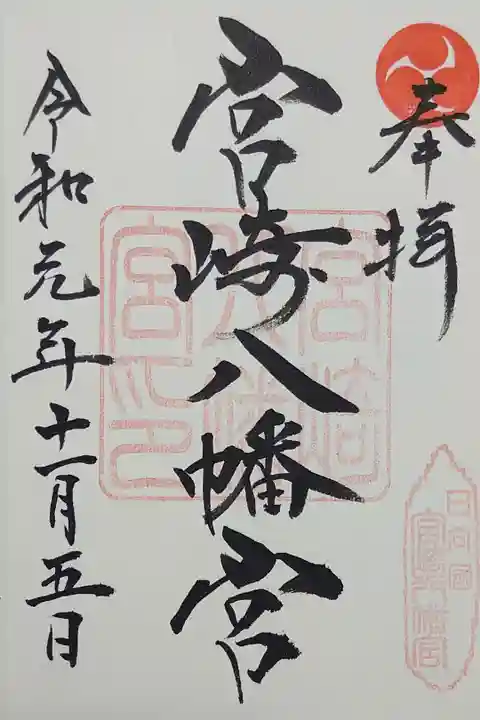 奉拝
日向國
宮崎八幡宮
宮崎八幡宮
宮崎八幡宮印
令和元年十一月五日